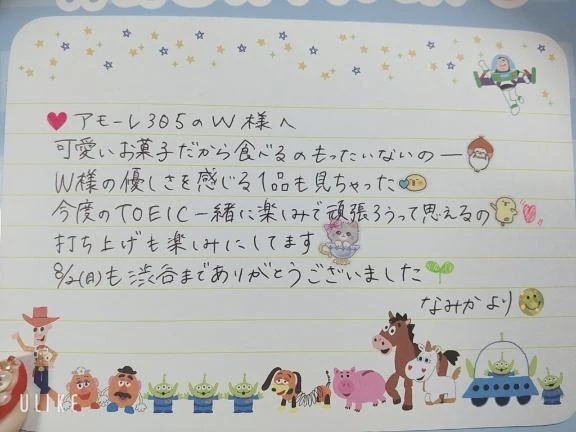 アモーレ305のW様へ
可愛いお菓子だから食べるのもったいないの〜
W様の優しさを感じる1品も見ちゃった
今度のTOEIC一緒に楽しみで頑張ろうって思えるの
打ち上げも楽しみにしてます
8/2(月)も渋谷までありがとうございました
なみかより
ULIKE